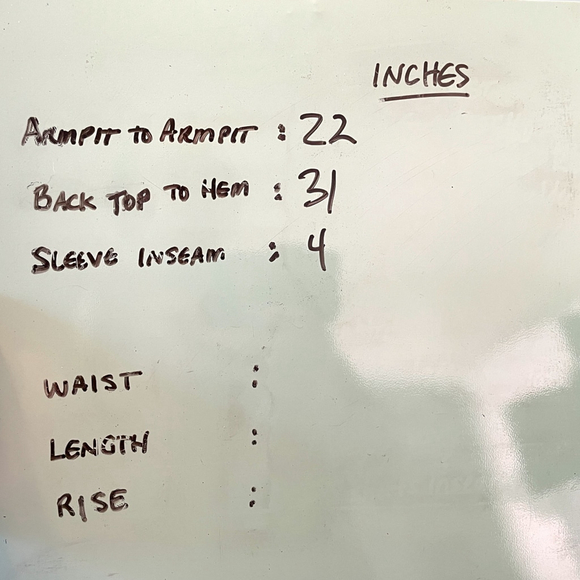 INCHES
ARMPIT TO ARMPIT : 22
BACK TOP TO HEM : 31
SLEEVE INSEAM : 4
WAIST :
LENGTH :
RISE :